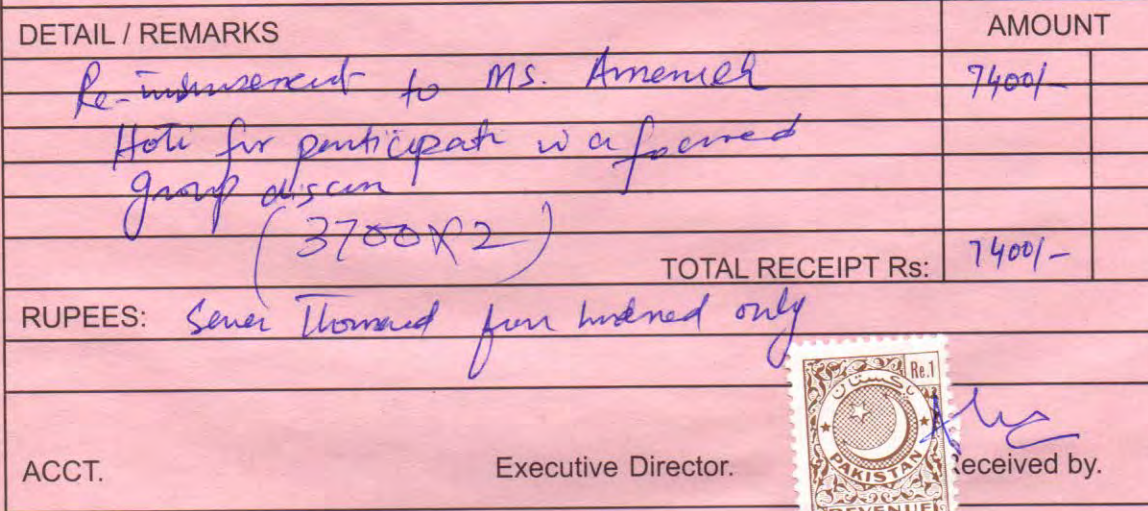 DETAIL / REMARKS AMOUNT
Re-imbursement to Ms. Ameneh 7400/-
Hoti for participati in a focused
group discun
(3700x2)
TOTAL RECEIPT Rs: 7400/-
RUPEES: Seven Thousand four hundred only
Re.1
پاکستان
PAKISTAN
REVENUE
ACCT. Executive Director. Received by.